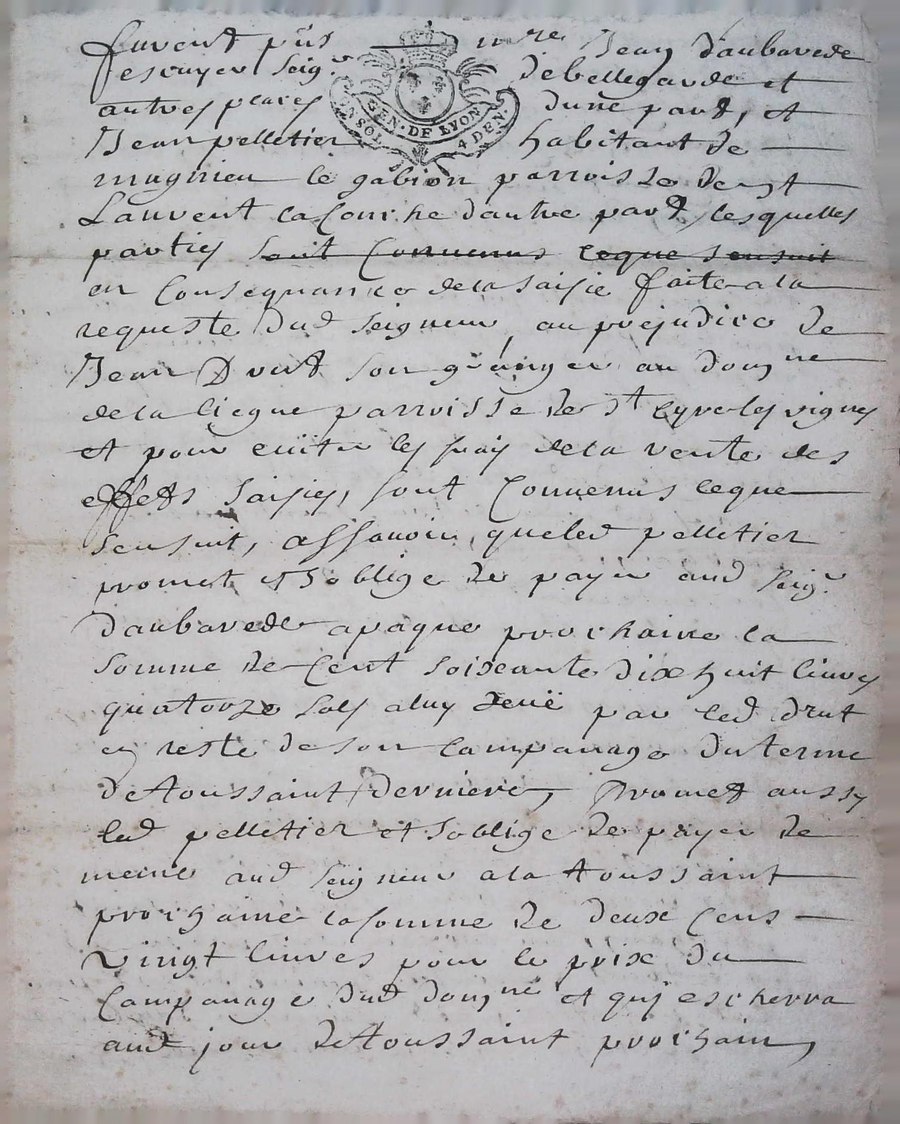 furent p̃ns mre Jean daubarede
escuyer seigr de bellegarde et
autres places dune part, et
UN SOL GEN · DE LYON · 4 DEN ·
Jean pelletier habitant de
magnieu le gabion parroisse de st
Laurent la Conche dautre part lesquelles
parties sont Convenus ceque sensuit
en Consequance de la saisie faite a la
requeste dud seigneur, au prejudice de
Jean Drut son granger au domne
de la liegue parroisse de st Cyre les vignes
et pour eviter les frais de la vente des
effets saisies, sont Convenus ceque
sensuit, assavoir, que led pelletier
promet et soblige de payer aud seigr
daubarede a paque prochaine la
somme de Cent soixante dix huit livres
quatorze sols a luy deuë par led drut
en reste de son Campanage du terme
de toussaint derniere, Promet aussy
led pelletier et soblige de payer de
meme aud seigneur a la toussaint
prochaine la somme de deux Cens
vingt livres pour le prix du
Campanage dud domne et qui escherra
aud jour de toussaint prochain,